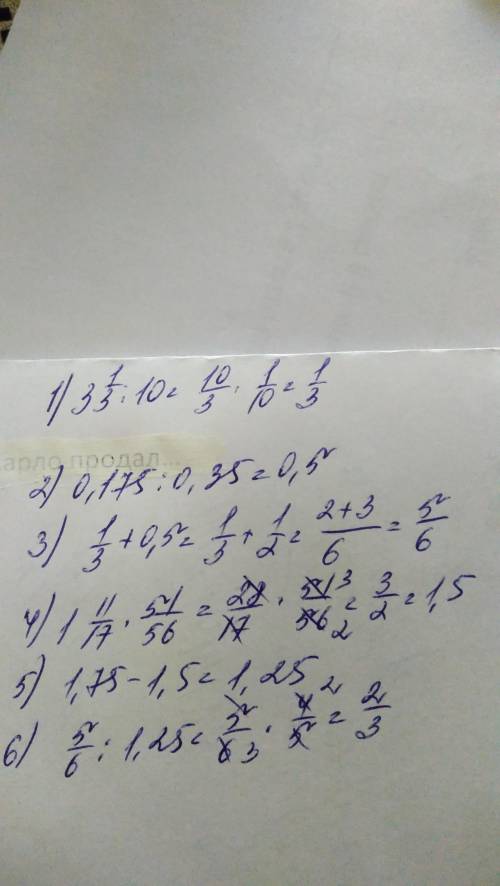 1) 3 1/3 : 10 = 10/3 · 1/10 = 1/3
арло продал...
2) 0,175 : 0,35 = 0,5
3) 1/3 + 0,5 = 1/3 + 1/2 = (2+3)/6 = 5/6
4) 1 11/17 · 51/56 = 28/17 · 51 3/56 2 = 3/2 = 1,5
5) 1,75 - 1,5 = 1,25
6) 5/6 : 1,25 = 5/6 3 · 4 2/5 = 2/3